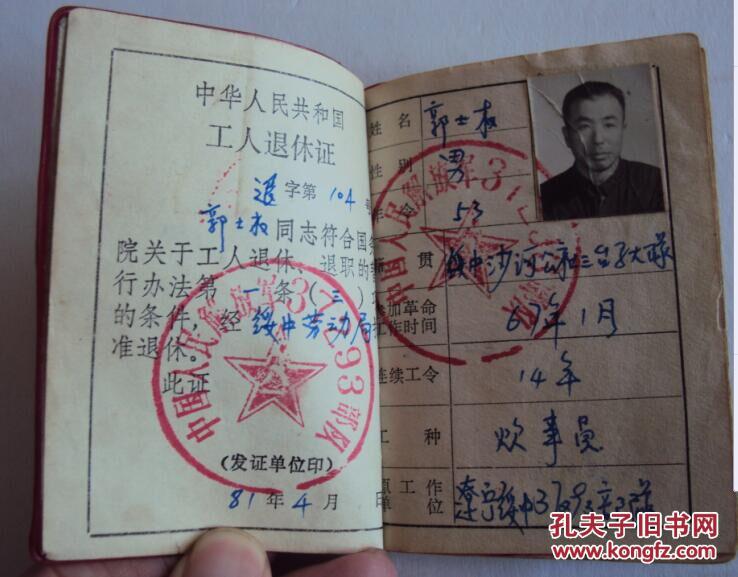 中华人民共和国
工人退休证
退 字第 104 号
郭士权 同志符合国务
院关于工人退休、退职的暂
行办法第 一 条(三)项
的条件,经 绥中劳动局 批
准退休。
此证
中国人民解放军37193部队
(发证单位印)
81年4月 日
姓名 郭士权
性别 男
年令 53
贯 绥中沙河公社三台子大队
参加革命工作时间 67年1月
连续工令 14年
工种 炊事员
原工作单位 辽宁绥中
中国人民解放军3
部队
孔夫子旧书网
www.kongfz.com